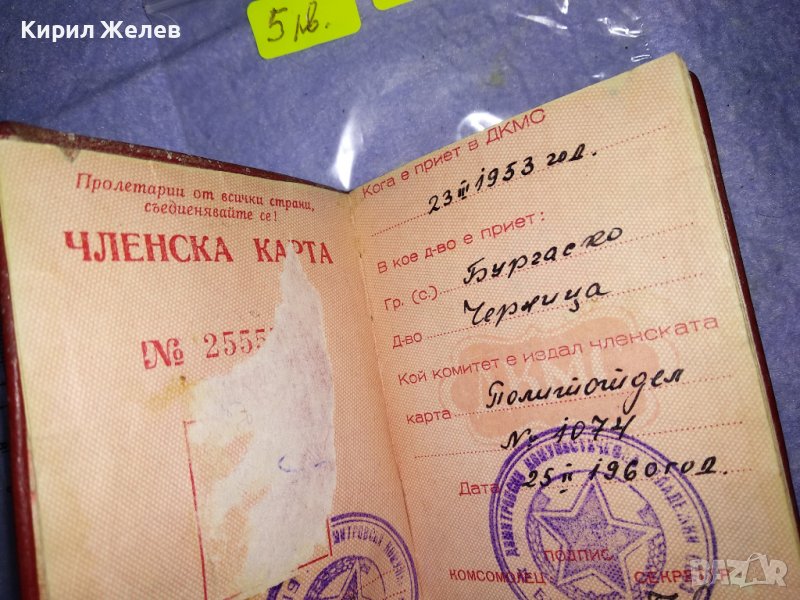 Кирил Желев
5 лв.
Пролетарии от всички страни,
съединявайте се!
ЧЛЕНСКА КАРТА
№ 2555
Кога е приет в ДКМС
23 III 1953 год.
В кое д-во е приет:
Гр. (с.) Бургаско
Д-во Черница
Кой комитет е издал членската
карта Политотдел
№ 1074
Дата 25 II 1960 год.
ПОДПИС
КОМСОМОЛЕЦ СЕКРЕТАР
ДКМС
BAZAR